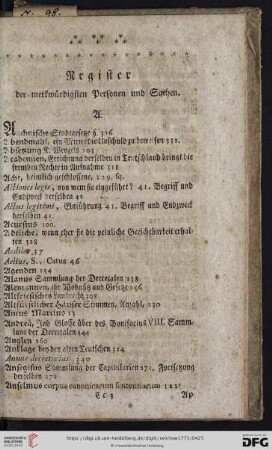 Register
der merkwürdigsten Personen und Sachen.
A.
Aachnische Stadtgesetze §. 316
Abendmahl, ein Mittel die Unschuld zu beweisen 332.
Absetzung K. Wenzels 103
Academien, Errichtung derselben in Teutschland bringt die
fremden Rechte in Aufnahme 318
Acht, heimlich geschlossene, 229. sq.
Actiones legis, von wem sie eingeführt? 41. Begriff und
Endzweck derselben 42
Actus legitimi, Einführung 41. Begriff und Endzweck
derselben 41.
Accursius 100.
Adeliche, wenn eher sie die peinliche Gerichtbarkeit erhal-
ten 328
Aediles 37
Aelius, S., Catus 46
Agenden 154
Alanus Sammlung der Decretalen 138
Alemannen, ihr Wohnsitz und Gesetze 256
Altfriesisches Landrecht 308
Altfürstlicher Häuser Stimmen, Anzahl, 230
Ancus Marcius 13
Andreä, Joh. Glosse über des Bonifacius VIII. Samm-
lung der Decretalen 144
Angeln 260
Anklage bey den alten Teutschen 324
Annus decretorius 240
Ansegisus Sammlung der Capitularien 271. Fortsetzung
derselben 272
Anselmus corpus canonicarum sanctionum 122
Cc 3
Ap
http://digi.ub.uni-heidelberg.de/diglit/selchow1771/0425
© Universitätsbibliothek Heidelberg